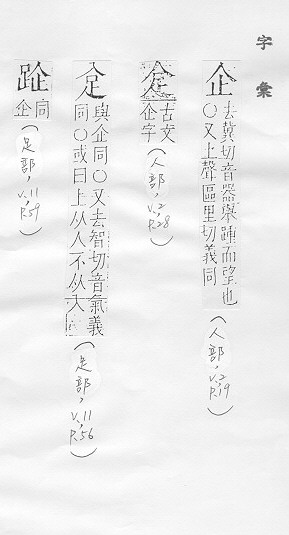 字彙
企
去冀切音器舉踵而望也
○又上聲區里切義同
(人部, V.2, P.19)
古文
企字
(人部, V.2, P.28)
與企同○又去智切音氣義
同○或曰上从人不从
(足部, V.11, P.56)
同
企
(足部, V.11, P.59)